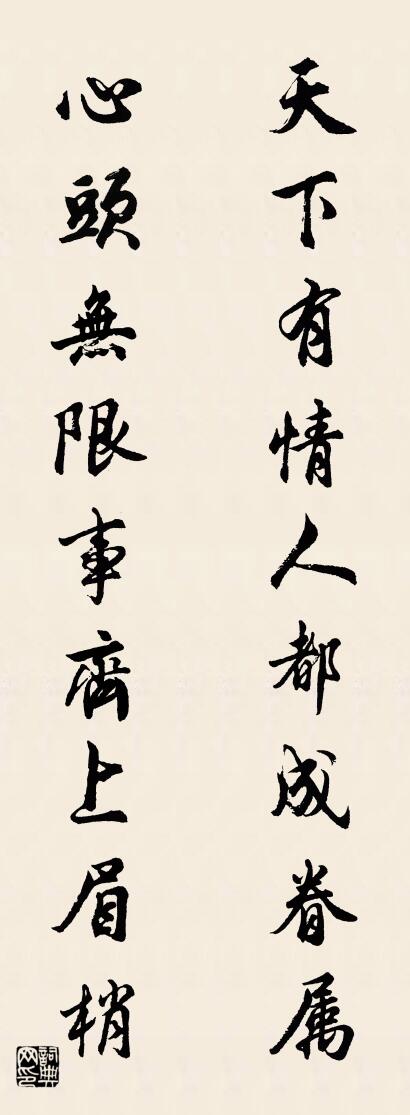 天下有情人都成眷属
心頭無限事齊上眉梢
詞典網印